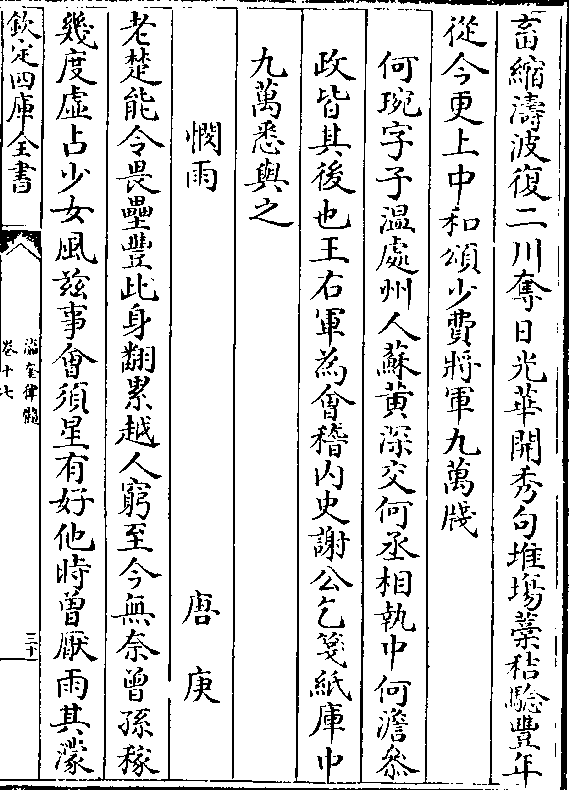 畜縮濤波復二川奪日光華開秀句堆塲藁秸驗豐年
從今更上中和頌少費將軍九萬牋
何琬字子温處州人蘇黄深交何丞相執中何澹叅
政皆其後也王右軍為會稽内史謝公乞箋紙庫中
九萬悉與之
憫雨　唐庚
老楚能令畏壘豐此身翻累越人窮至今無奈曾孫稼
幾度虚占少女風兹事會須星有好他時曽厭雨其濛
欽定四庫全書
瀛奎律髓
卷十七
三十